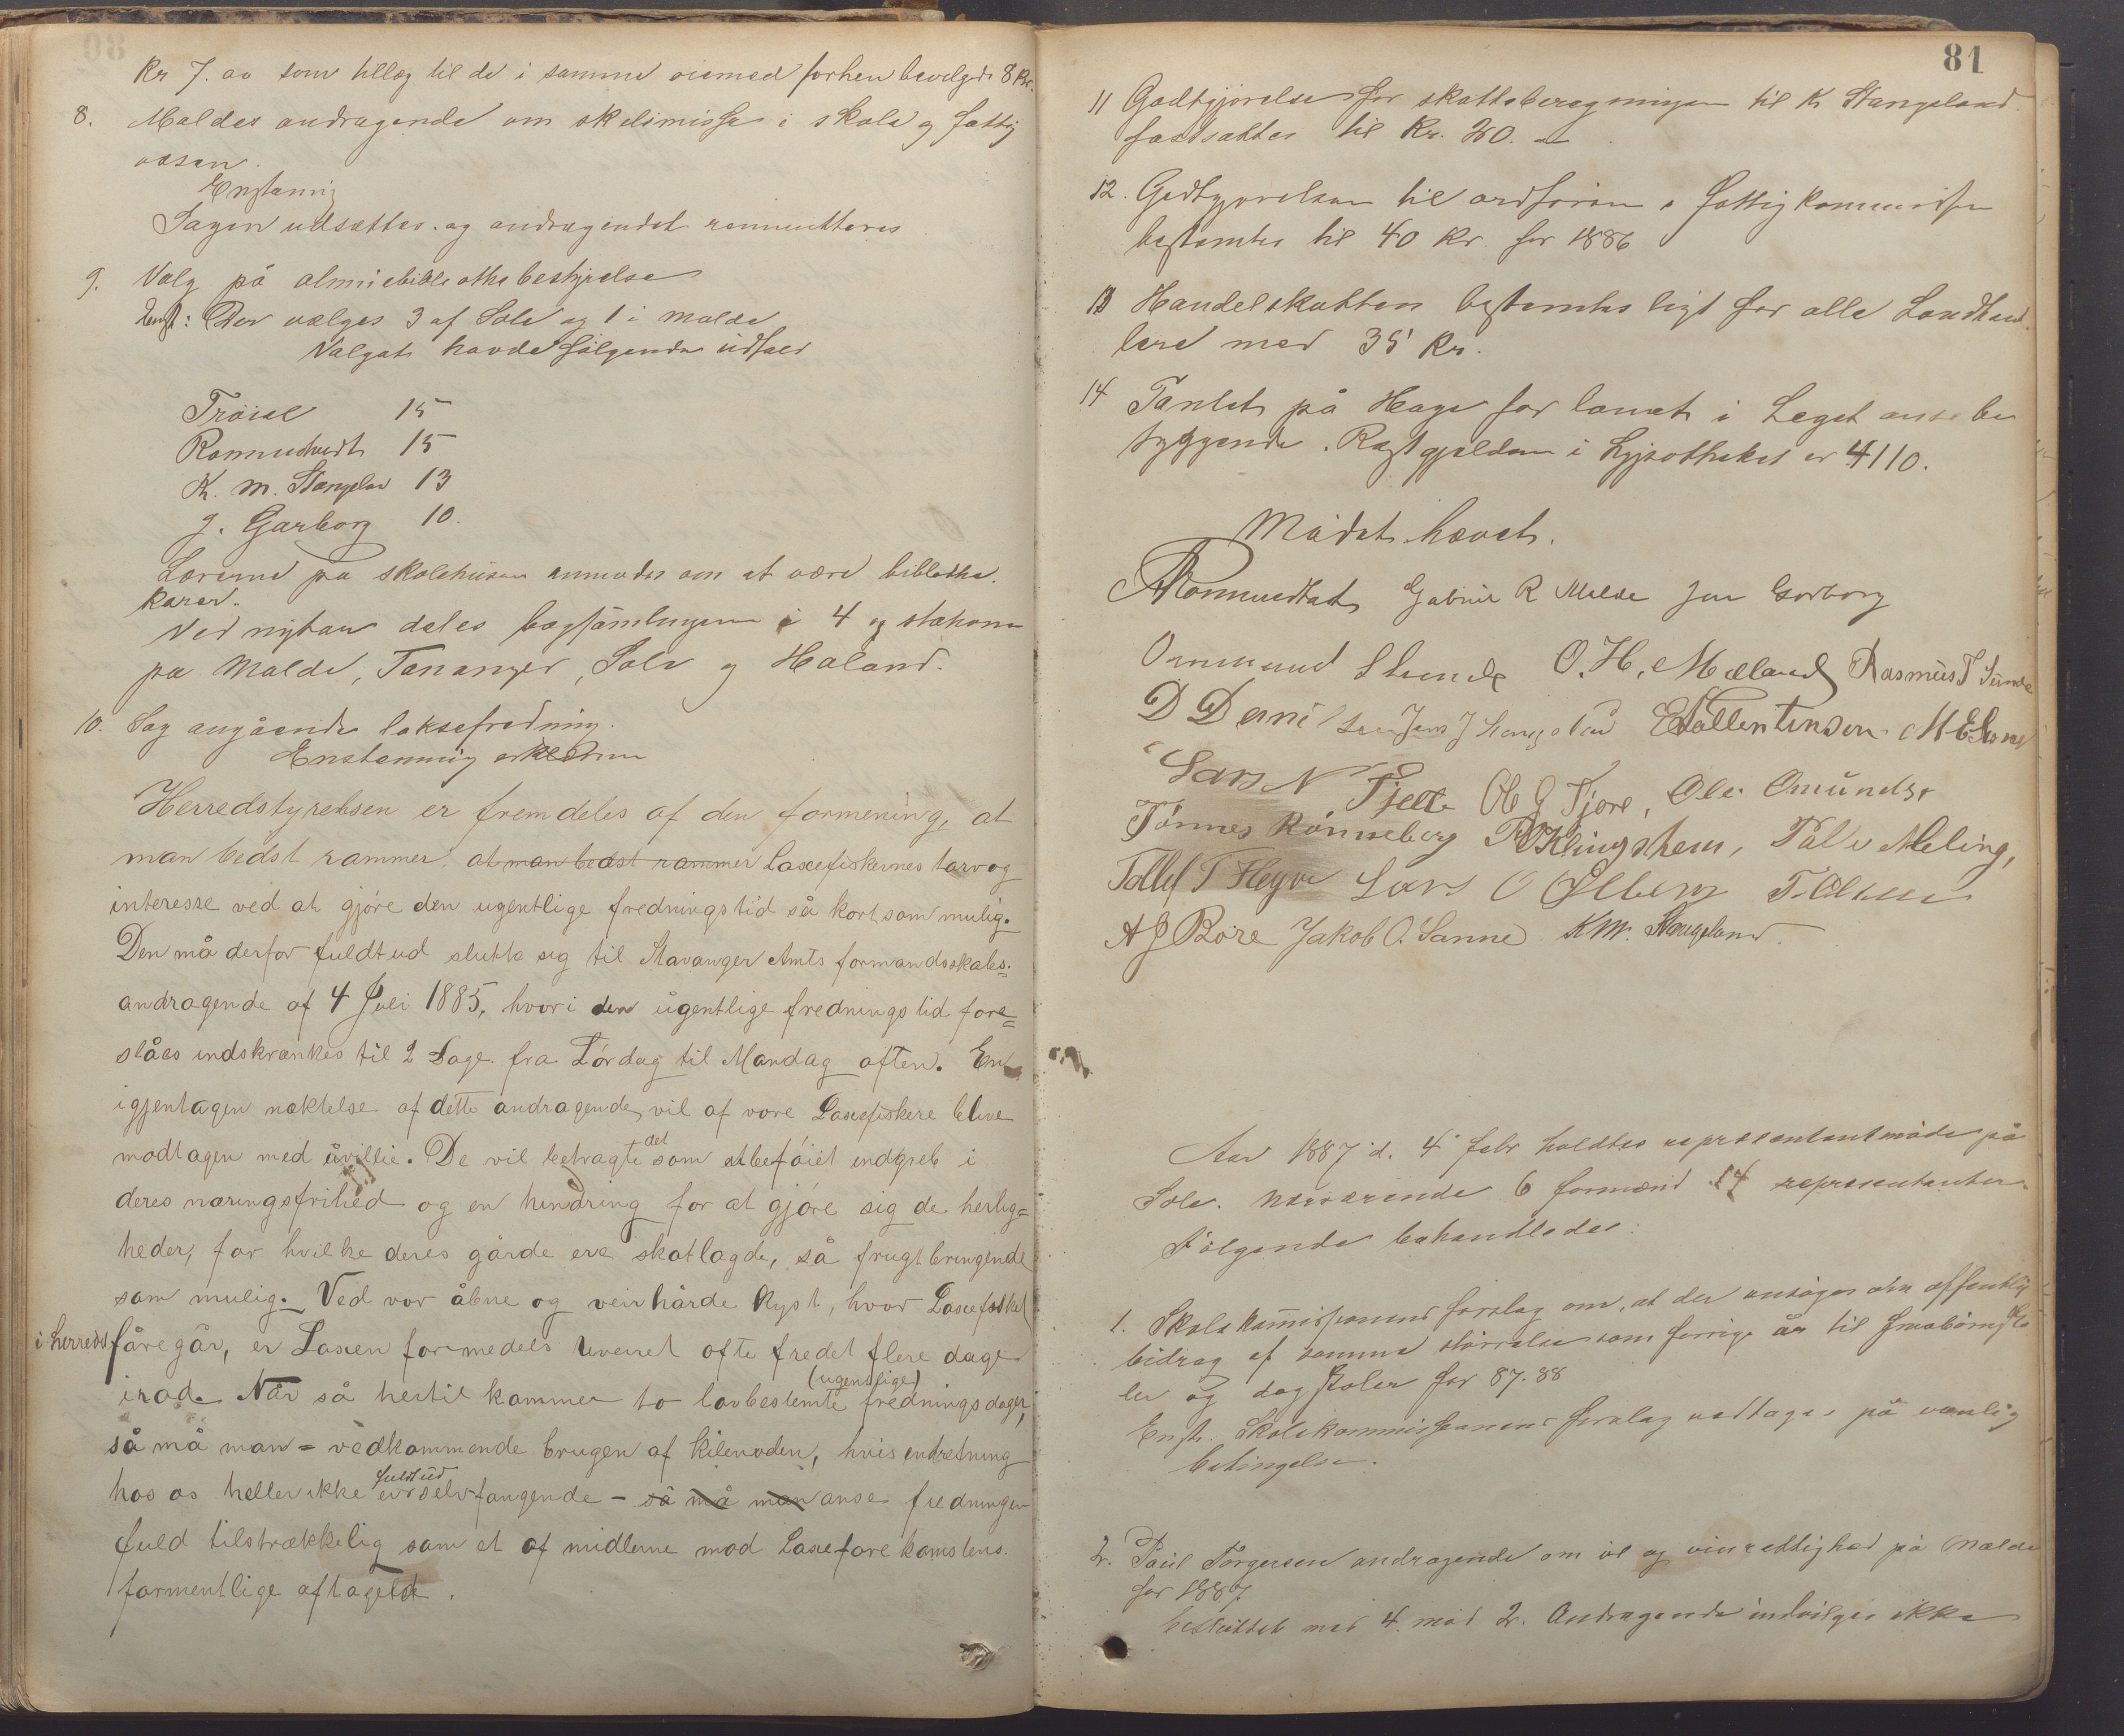 Kr 7. 00 som tillæg til de i samme øiemed forhen bevilgede 8 Kr.
8. Maldes andragende om skilsmisse i skole og fattig
væsen.
Enstemig
Sagen udsættes og andragendet remitteres
9. Valg på almuebibliothe bestyrelse
Enst: Der vælges 3 af Sole og 1 i Malde
Valget havde følgende udfald
Trøiel 15
Rommetvedt 15
K. M. Stangelan 13
J. Garborg 10.
Lærerne på skolehusene anmodes om at være bibliothe
karer.
Ved nytaar deles bogsamlingen i 4 stationer
på Malde, Tananger, Sole og Haland.
10. Sag angående laksefredning.
Enstemmig erklæring
Herredstyrelsen er fremdeles af den formening, at
man bedst rammer at man bedst rammer Laxefiskernes tarv og
interesse ved at gjöre den ugentlige fredningstid så kort som mulig.
Den må derfor fuldtud slutte sig til Stavanger Amts formandsskabs=
andragende af 4 Juli 1885, hvori den ugentlige fredningstid fore=
slåes indskrænkes til 2 Dage fra Lördag til Mandag aften. En
igjentagen nægtelse af dette andragende, vil af vore Laxefiskere blive
modtagen med uvillie. De vil betragte det som et beföiet indgreb i
deres næringsfrihed og en hindring for at gjöre sig de herlig=
heder, for hvilke deres gårde ere skatlagde, så frugtbringende
som mulig. Ved vor åbne og veirhårde Kyst, hvor Laxefisket
i herredet foregår, er Laxen formedels uveiret ofte fredet flere dage
irad. Når så hertil kommer to lovbestemte (ugentlige) fredningsdage,
så må man = vedkommende brugen af kilenoden, hvis indretning
hos os heller ikke er fuldtud selvfangende - så må man anse fredningen
fuld tilstrækkelig som et af midlerne mod Laxeforekomstens
formentlige aftagelse.
81
11 Godtgjørelse for skatteberegningen til K Stangeland
fastsættes til Kr. 20.
12. Godtgjørelsen til ordføren i fattigkommissionen
bestemtes til 40 Kr. for 1886
13 Handelskatten bestemtes ligt for alle Landhand
lere med 35 Kr.
14 Pantet på Haga for lånet i Leget anses be
tyggende. Restgjælden i Hypotheket er 4110.
Mødet hævet.
Rommetvedt Gabriel R Melde Jon Garborg
Ommund Sunde O. H. Mæland Rasmus T Sunde
D Danielsen Jens J Stangeland E Vallentinsen M E Sømme
Lars N Tjelta Ole G Tjore, Ole Omundsen
Tönnes Rönneberg R Klingsheim, Påll Meling,
Tollef T Høyve Lars O Ølberg T. Olsen
A J Böre Jakob O. Sanne K M. Stangeland.
Aar 1887 d. 4 febr holdtes representantmøde på
Sole. Nærværende 6 formænd 14 representanter.
Følgende behandledes:
1. Skolekommissionens forslag om, at der ansøges om offentlig
bidrag af samme størrelse som forrige år til småbørnsko
ler og dagskoler for 87-88
Enst. Skolekommissionens forslag vedtages på vanlig
betingelse.
2. Paul Torgersen andragende om øl og vinrettighed på Mælde
for 1887
besluttet med 4 mod 2. Andragende indvilges ikke